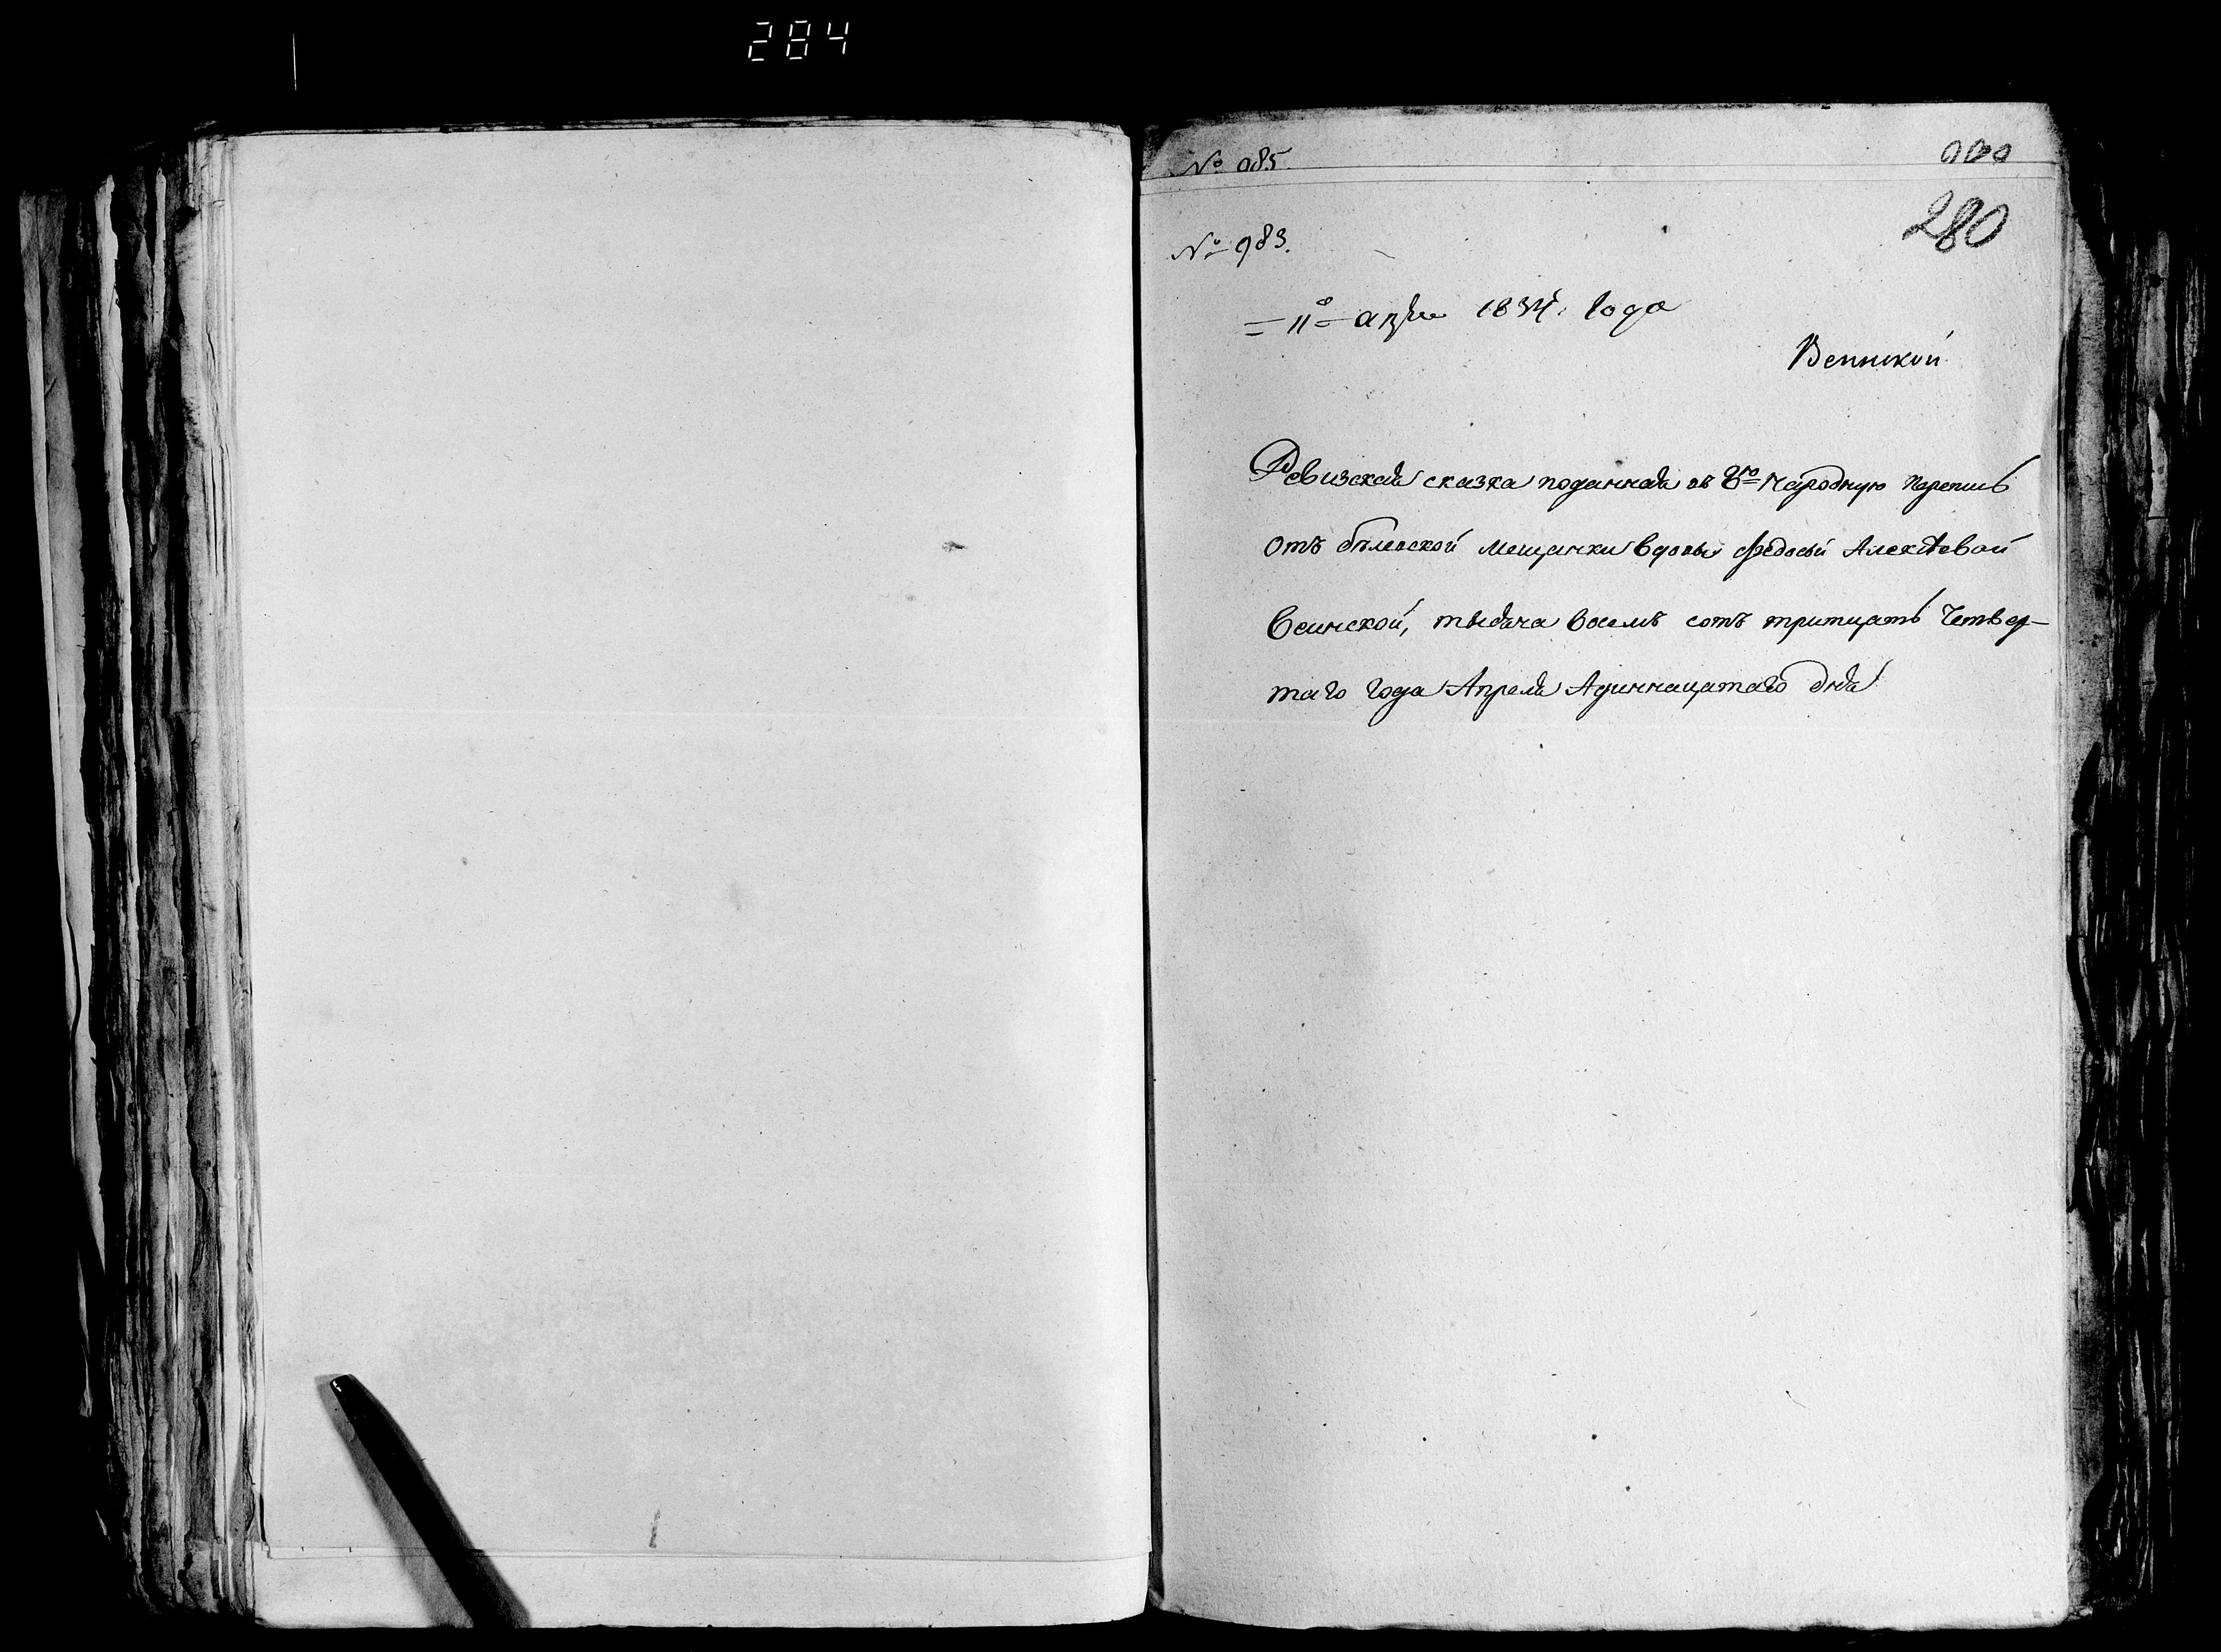 284
№ 985.
№ 983.
280
11го апре 1834. года
Ревизская сказка поданная въ 8ю Народную перепись
отъ белевской мещанки вдовы Федосьи Алексѣевой
тысяча восемь сотъ тритцать четвер-
таго года Апреля Адиннацатаго дня